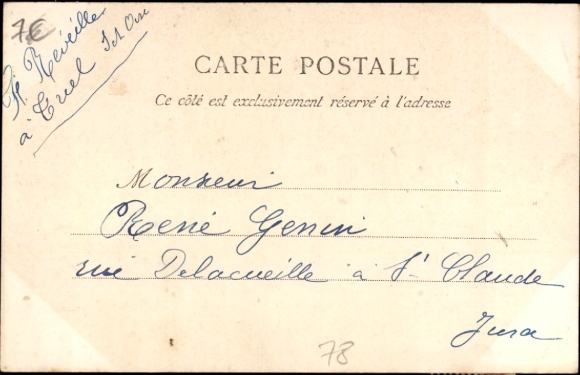 7€
Réveille
à Triel S et Oise
CARTE POSTALE
Ce côté est exclusivement réservé à l'adresse
Monsieur
René Genin
rue Delacueille à St Claude
Jura
78